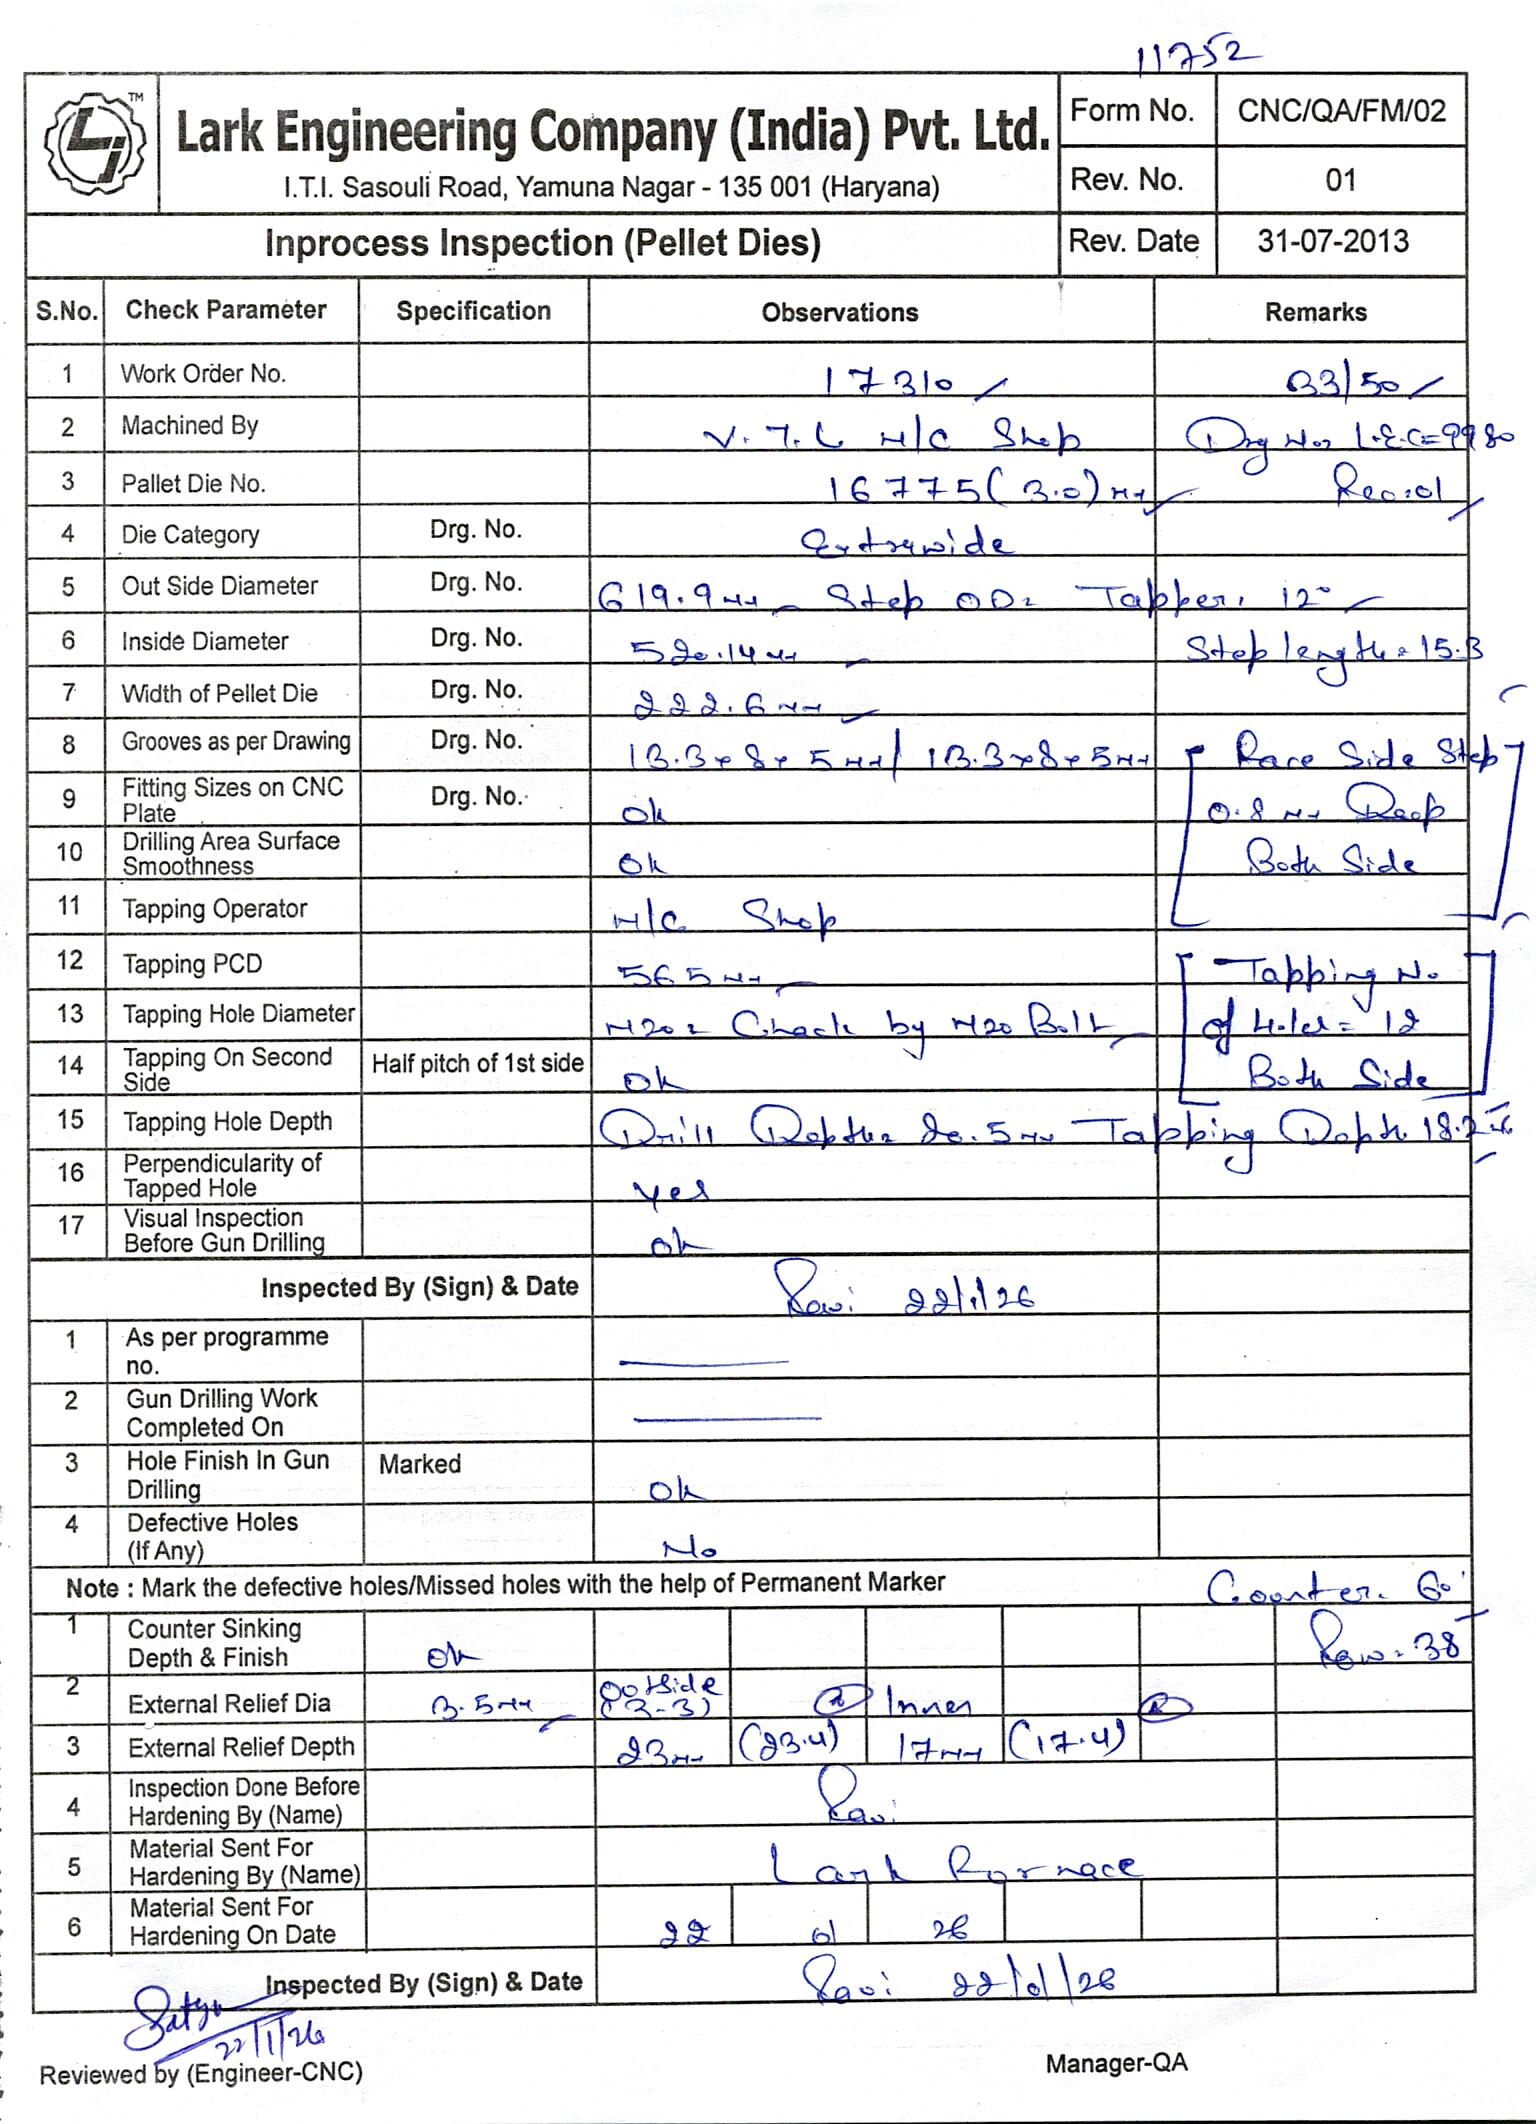 11752
Lark Engineering Company (India) Pvt. Ltd.
TM
I.T.I. Sasouli Road, Yamuna Nagar - 135 001 (Haryana)
Form No. CNC/QA/FM/02
Rev. No. 01
Inprocess Inspection (Pellet Dies) Rev. Date 31-07-2013
S.No. Check Parameter Specification Observations Remarks
1 Work Order No. 17310 33/50
2 Machined By V.T.L M/C Shop Drg No= L.E.C=9980
3 Pallet Die No. 16775(3.0)mm Rev:01
4 Die Category Drg. No. Extrawide
5 Out Side Diameter Drg. No. 619.9mm Step OD= Tapper. 12°
6 Inside Diameter Drg. No. 520.14mm Step length=15.3
7 Width of Pellet Die Drg. No. 222.6mm
8 Grooves as per Drawing Drg. No. 13.3x8x5mm/13.3x8x5mm Race Side Step
9 Fitting Sizes on CNC Plate Drg. No. Ok 0.8mm Deep
10 Drilling Area Surface Smoothness Ok Both Side
11 Tapping Operator M/C Shop
12 Tapping PCD 565mm Tapping No
13 Tapping Hole Diameter M20= Check by M20 Bolt of Holes=12
14 Tapping On Second Side Half pitch of 1st side Ok Both Side
15 Tapping Hole Depth Drill Depth= 20.5mm Tapping Depth 18.2
16 Perpendicularity of Tapped Hole yes
17 Visual Inspection Before Gun Drilling ok
Inspected By (Sign) & Date Ravi 22/1/26
1 As per programme no.
2 Gun Drilling Work Completed On
3 Hole Finish In Gun Drilling Marked Ok
4 Defective Holes (If Any) No
Note : Mark the defective holes/Missed holes with the help of Permanent Marker Counter. 60°
1 Counter Sinking Depth & Finish ok Row=38
2 External Relief Dia 3.5mm Outside (3-3) R Inner R
3 External Relief Depth 23mm (23.4) 17mm (17.4)
4 Inspection Done Before Hardening By (Name) Ravi
5 Material Sent For Hardening By (Name) Lark Furnace
6 Material Sent For Hardening On Date 22 01 26
Inspected By (Sign) & Date Ravi 22/01/26
Satya
22/1/26
Reviewed by (Engineer-CNC) Manager-QA